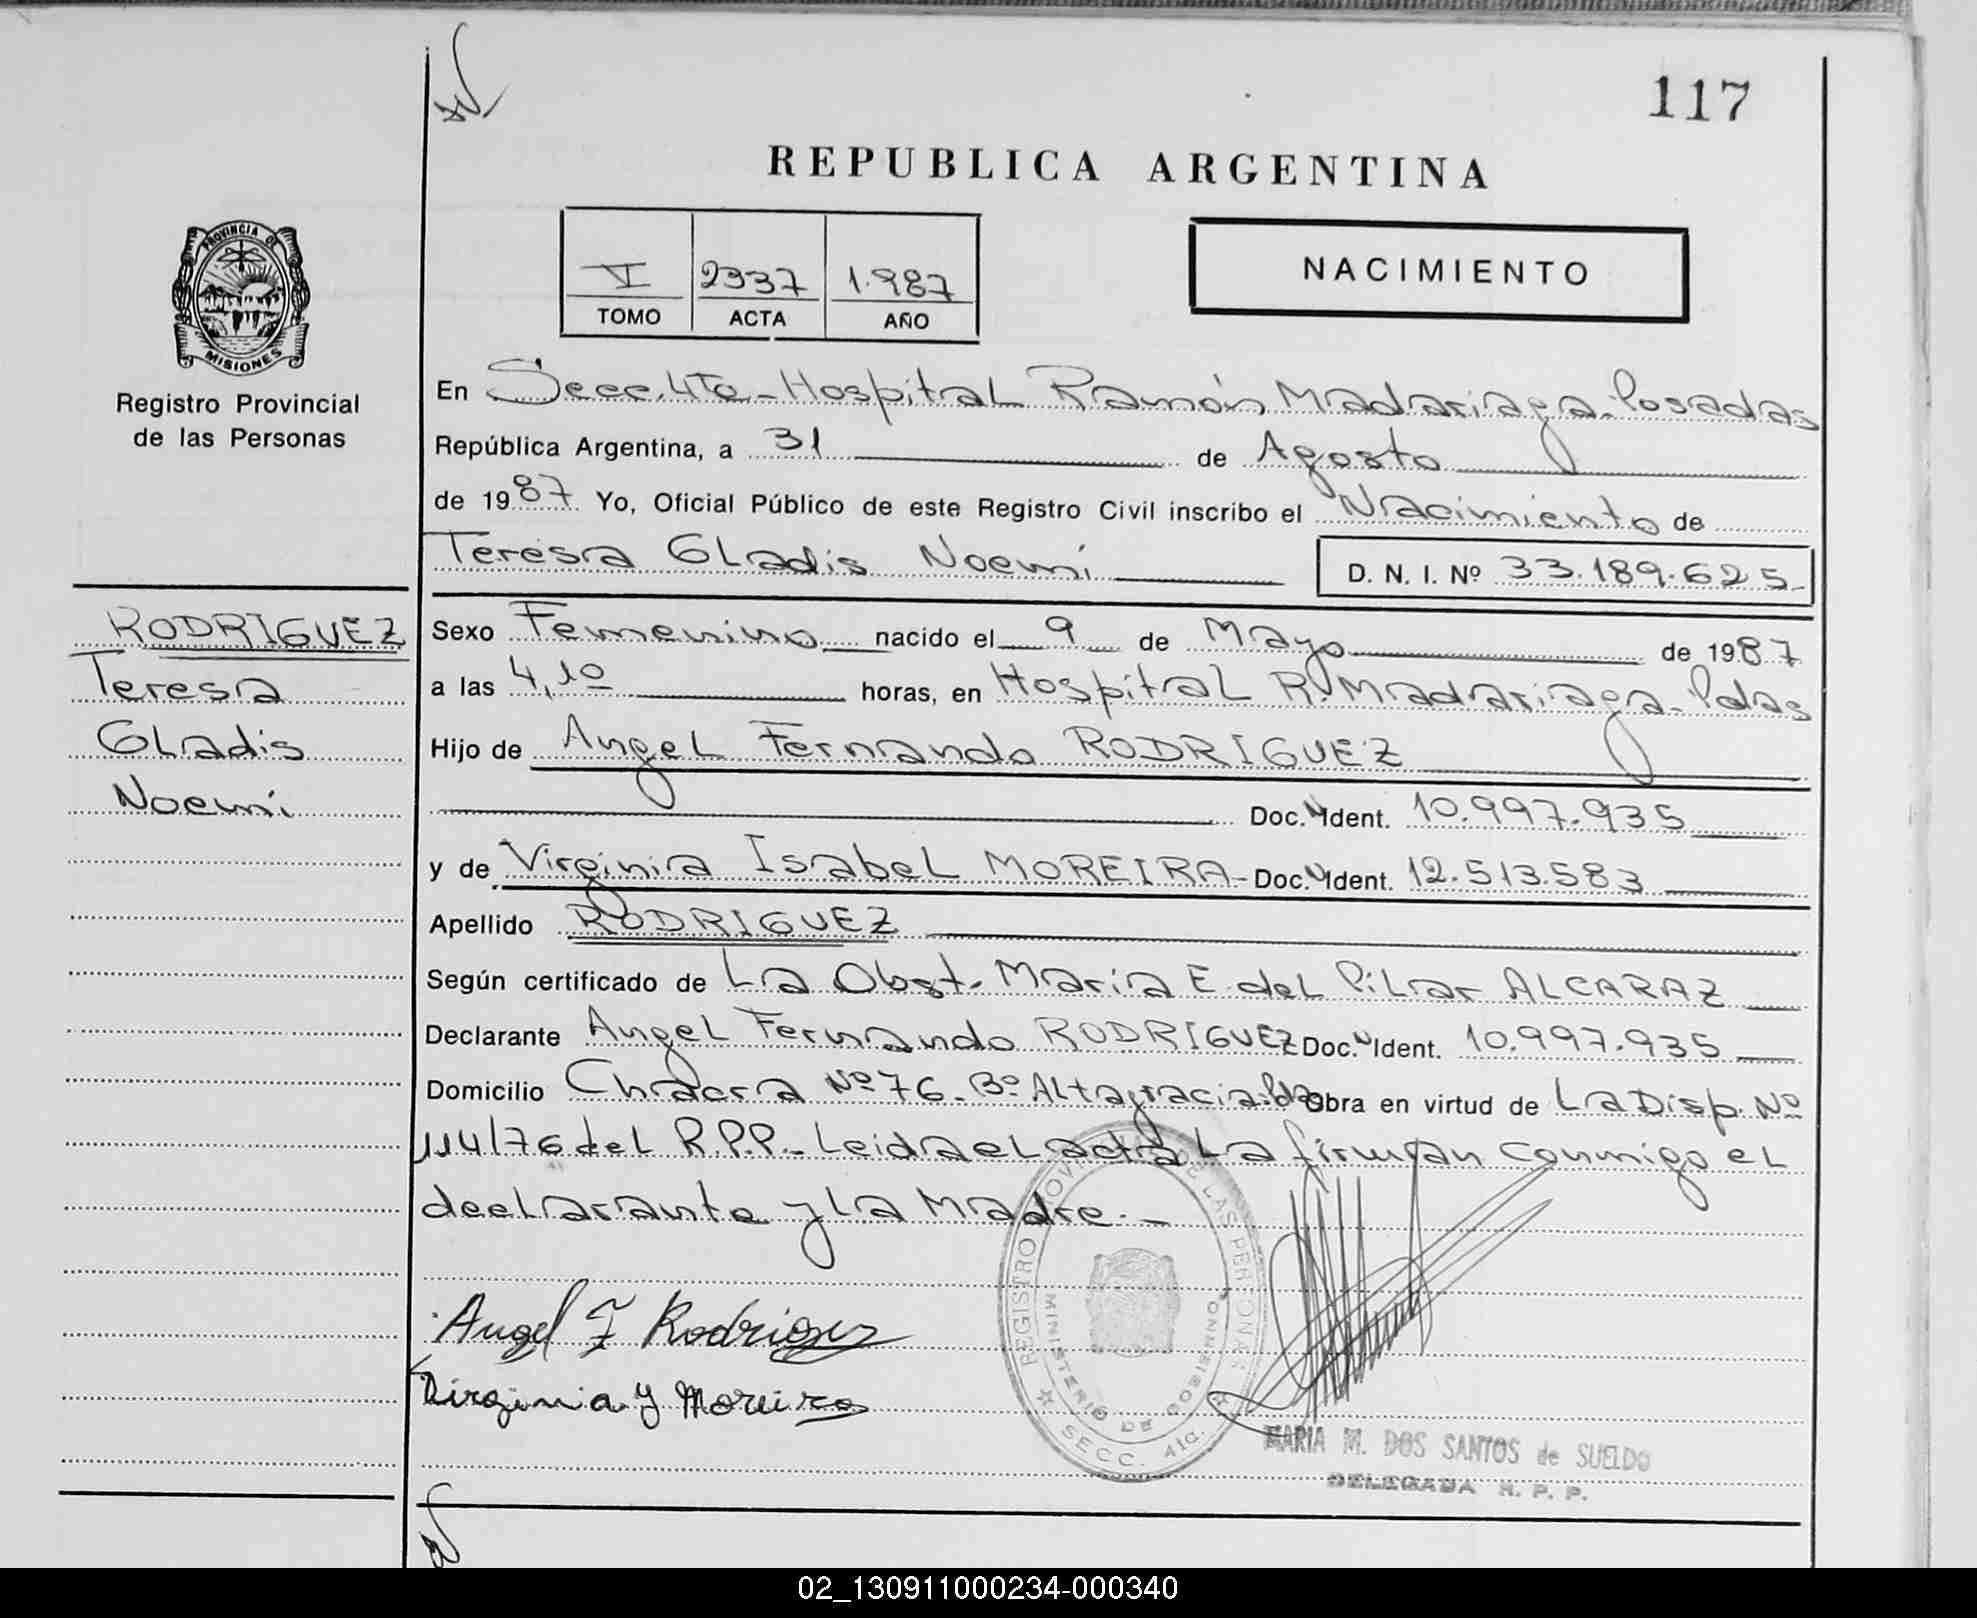 117
REPUBLICA ARGENTINA
V 2337 1.987
TOMO ACTA AÑO
NACIMIENTO
PROVINCIA DE
MISIONES
Registro Provincial
de las Personas
En Secc. 4ta - Hospital Ramón Madariaga - Posadas
República Argentina, a 31 de Agosto
de 1987 Yo, Oficial Público de este Registro Civil inscribo el Nacimiento de
Teresa Gladis Noemí D. N. I. Nº 33.189.625-
RODRIGUEZ
Teresa
Gladis
Noemí
Sexo Femenino nacido el 9 de Mayo de 1987
a las 4,10 horas, en Hospital R. Madariaga - Pdas
Hijo de Angel Fernando RODRIGUEZ
Doc. Ident. 10.997.935
y de Virginia Isabel MOREIRA - Doc. Ident. 12.513.583
Apellido RODRIGUEZ
Según certificado de La Obst. María E. del Pilar ALCARAZ
Declarante Angel Fernando RODRIGUEZ Doc. Ident. 10.997.935
Domicilio Chacra Nº 76 - Bº Altagracia - Pdas Obra en virtud de La Disp. Nº
114/76 del R.P.P. - Leida el acta La firman conmigo el
declarante y La Madre. -
Angel F Rodriguez
Virginia Y Moreira
REGISTRO PROV DE LAS PERSONAS
MINISTERIO DE GOBIERNO
SECC. 4ta.
MARIA M. DOS SANTOS de SUELDO
DELEGADA R. P. P.
02_130911000234-000340